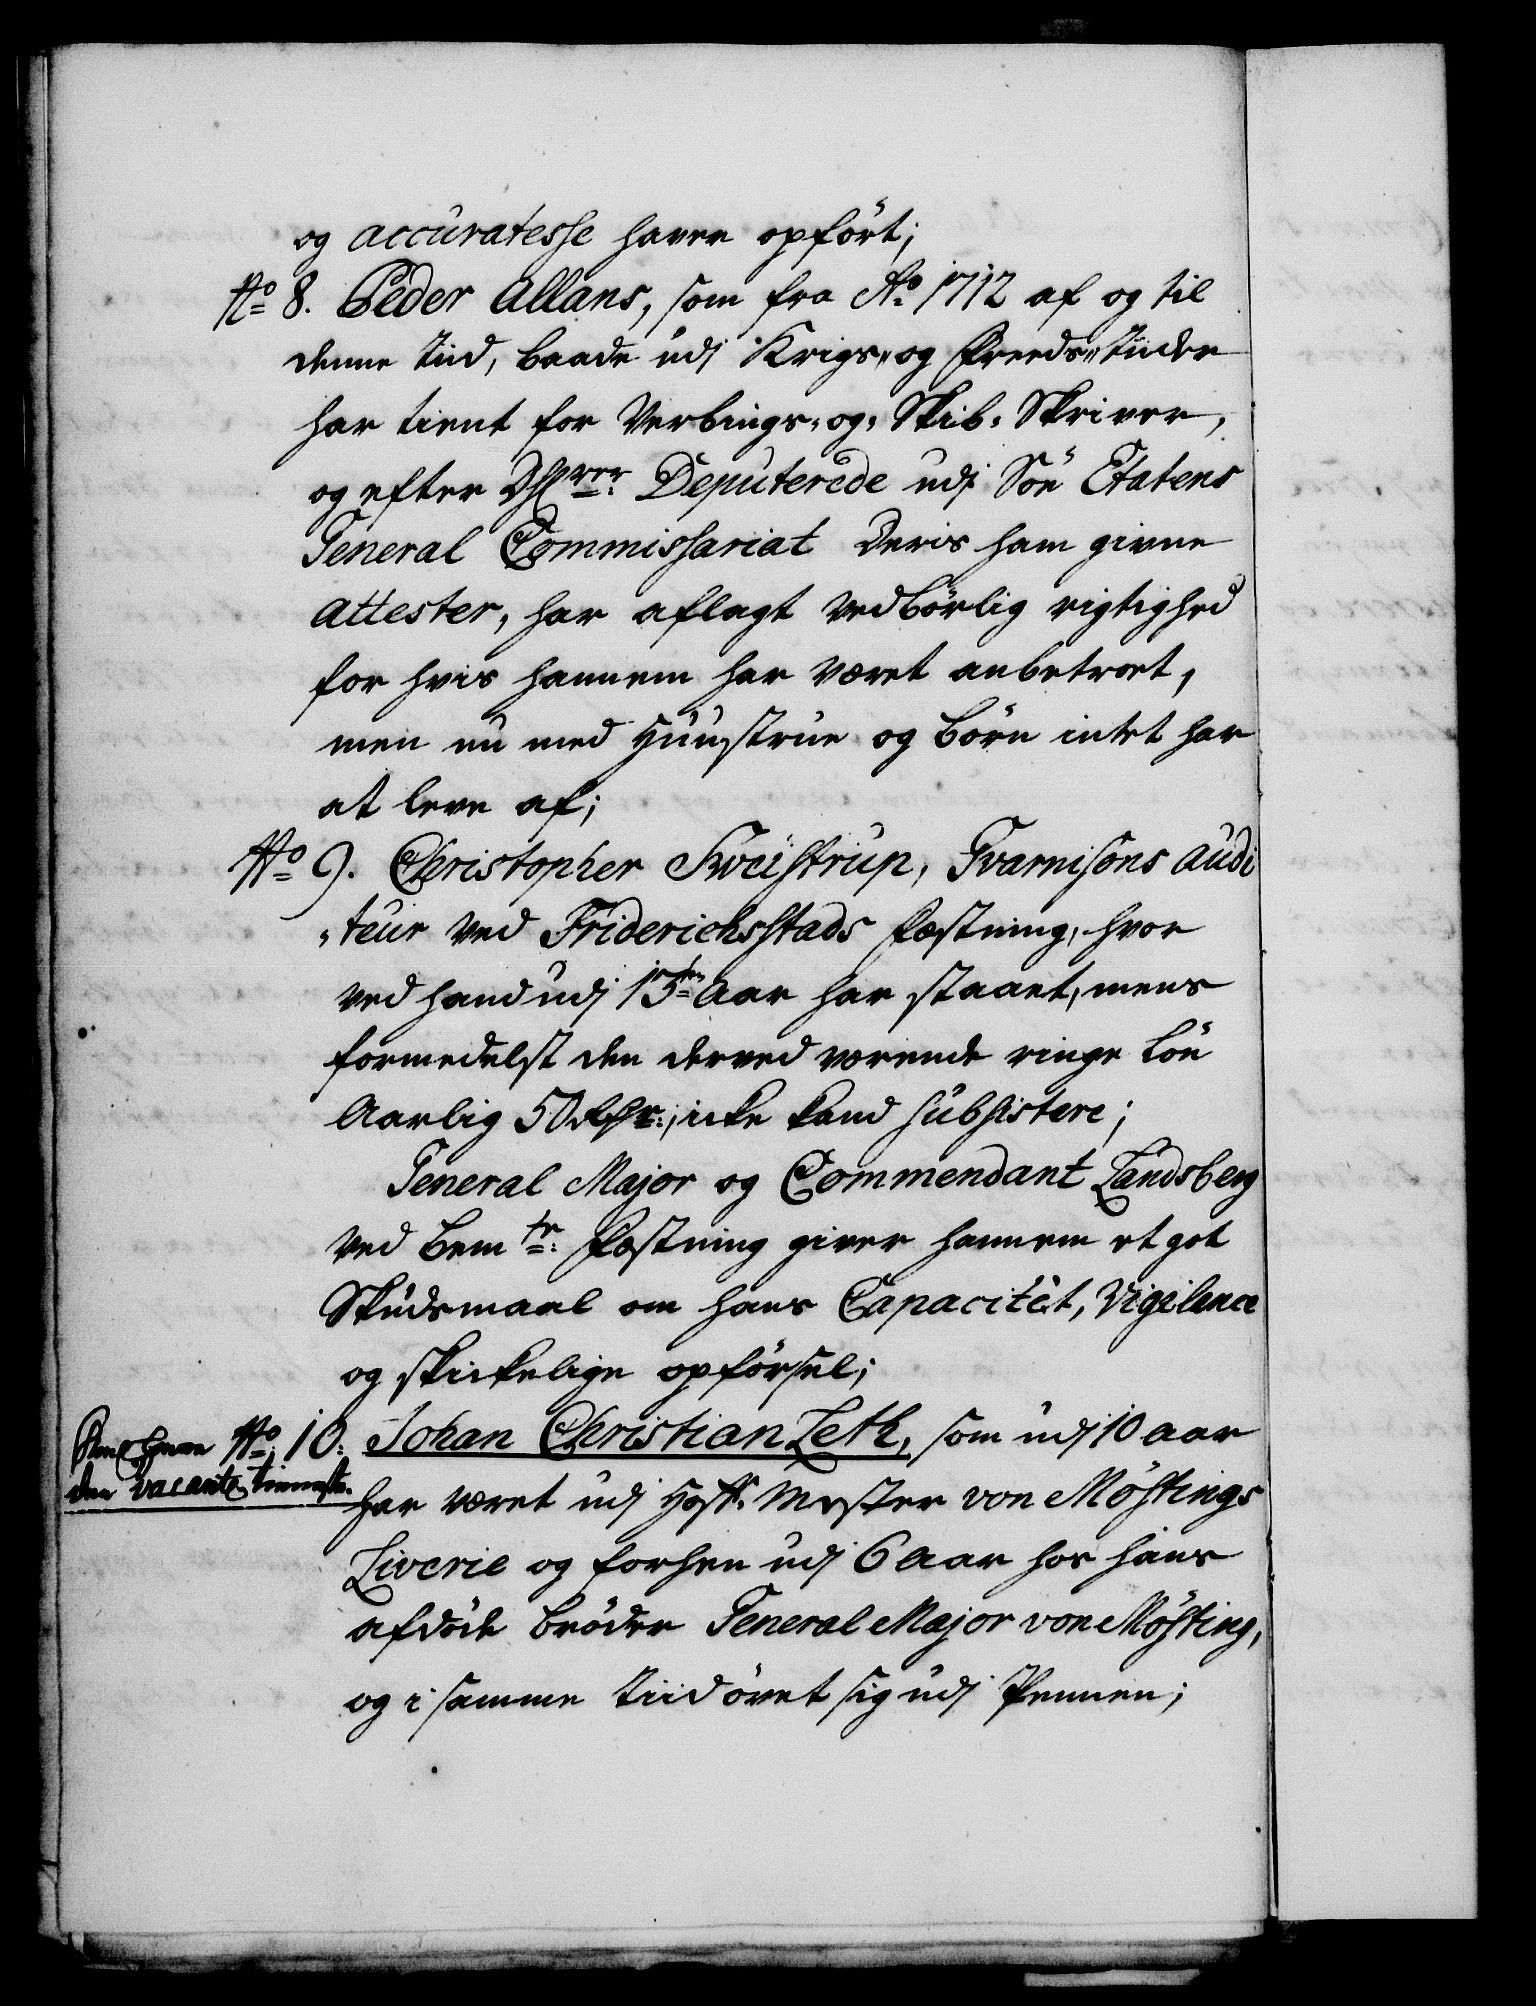 og accuratesse haver opført;
No 8. Peder Allans, som fra Ao 1712 af og til
denne Tiid, baade udj Krigs- og Freeds-Tiider
har tient for Verbings- og Skib-Skriver,
og efter Deputerede udj Söe Etatens
General Commissariat Deris ham givne
attester, har aflagt vedbörlig rigtighed
for hvis hannem har været anbetroet,
men nu med Huustrue og börn intet har
at leve af;
No 9. Christopher Svistrup, Gvarnisons audi
-teur ved Friderichsstads Fæstning, hvor
ved hand udj 15ten Aar har staaet, mens
formedelst den derved værende ringe Lön
Aarlig 50 Rdr:, icke kand subsistere;
General Major og Commendant Landsberg
ved bemte: Fæstning giver hannem et got
Skudsmaal om hans Capacitet, Vigilence
og skickelige opförsel;
den vacante tienneste.
No 10. Johan Christian Leth, som udj 10 aar
har været udj Hoff-Mester von Möstings
Liverie og forhen udj 6 Aar hos hans
afdöde broder General Major von Mösting,
og i samme Tiid övet sig udj Pennen;